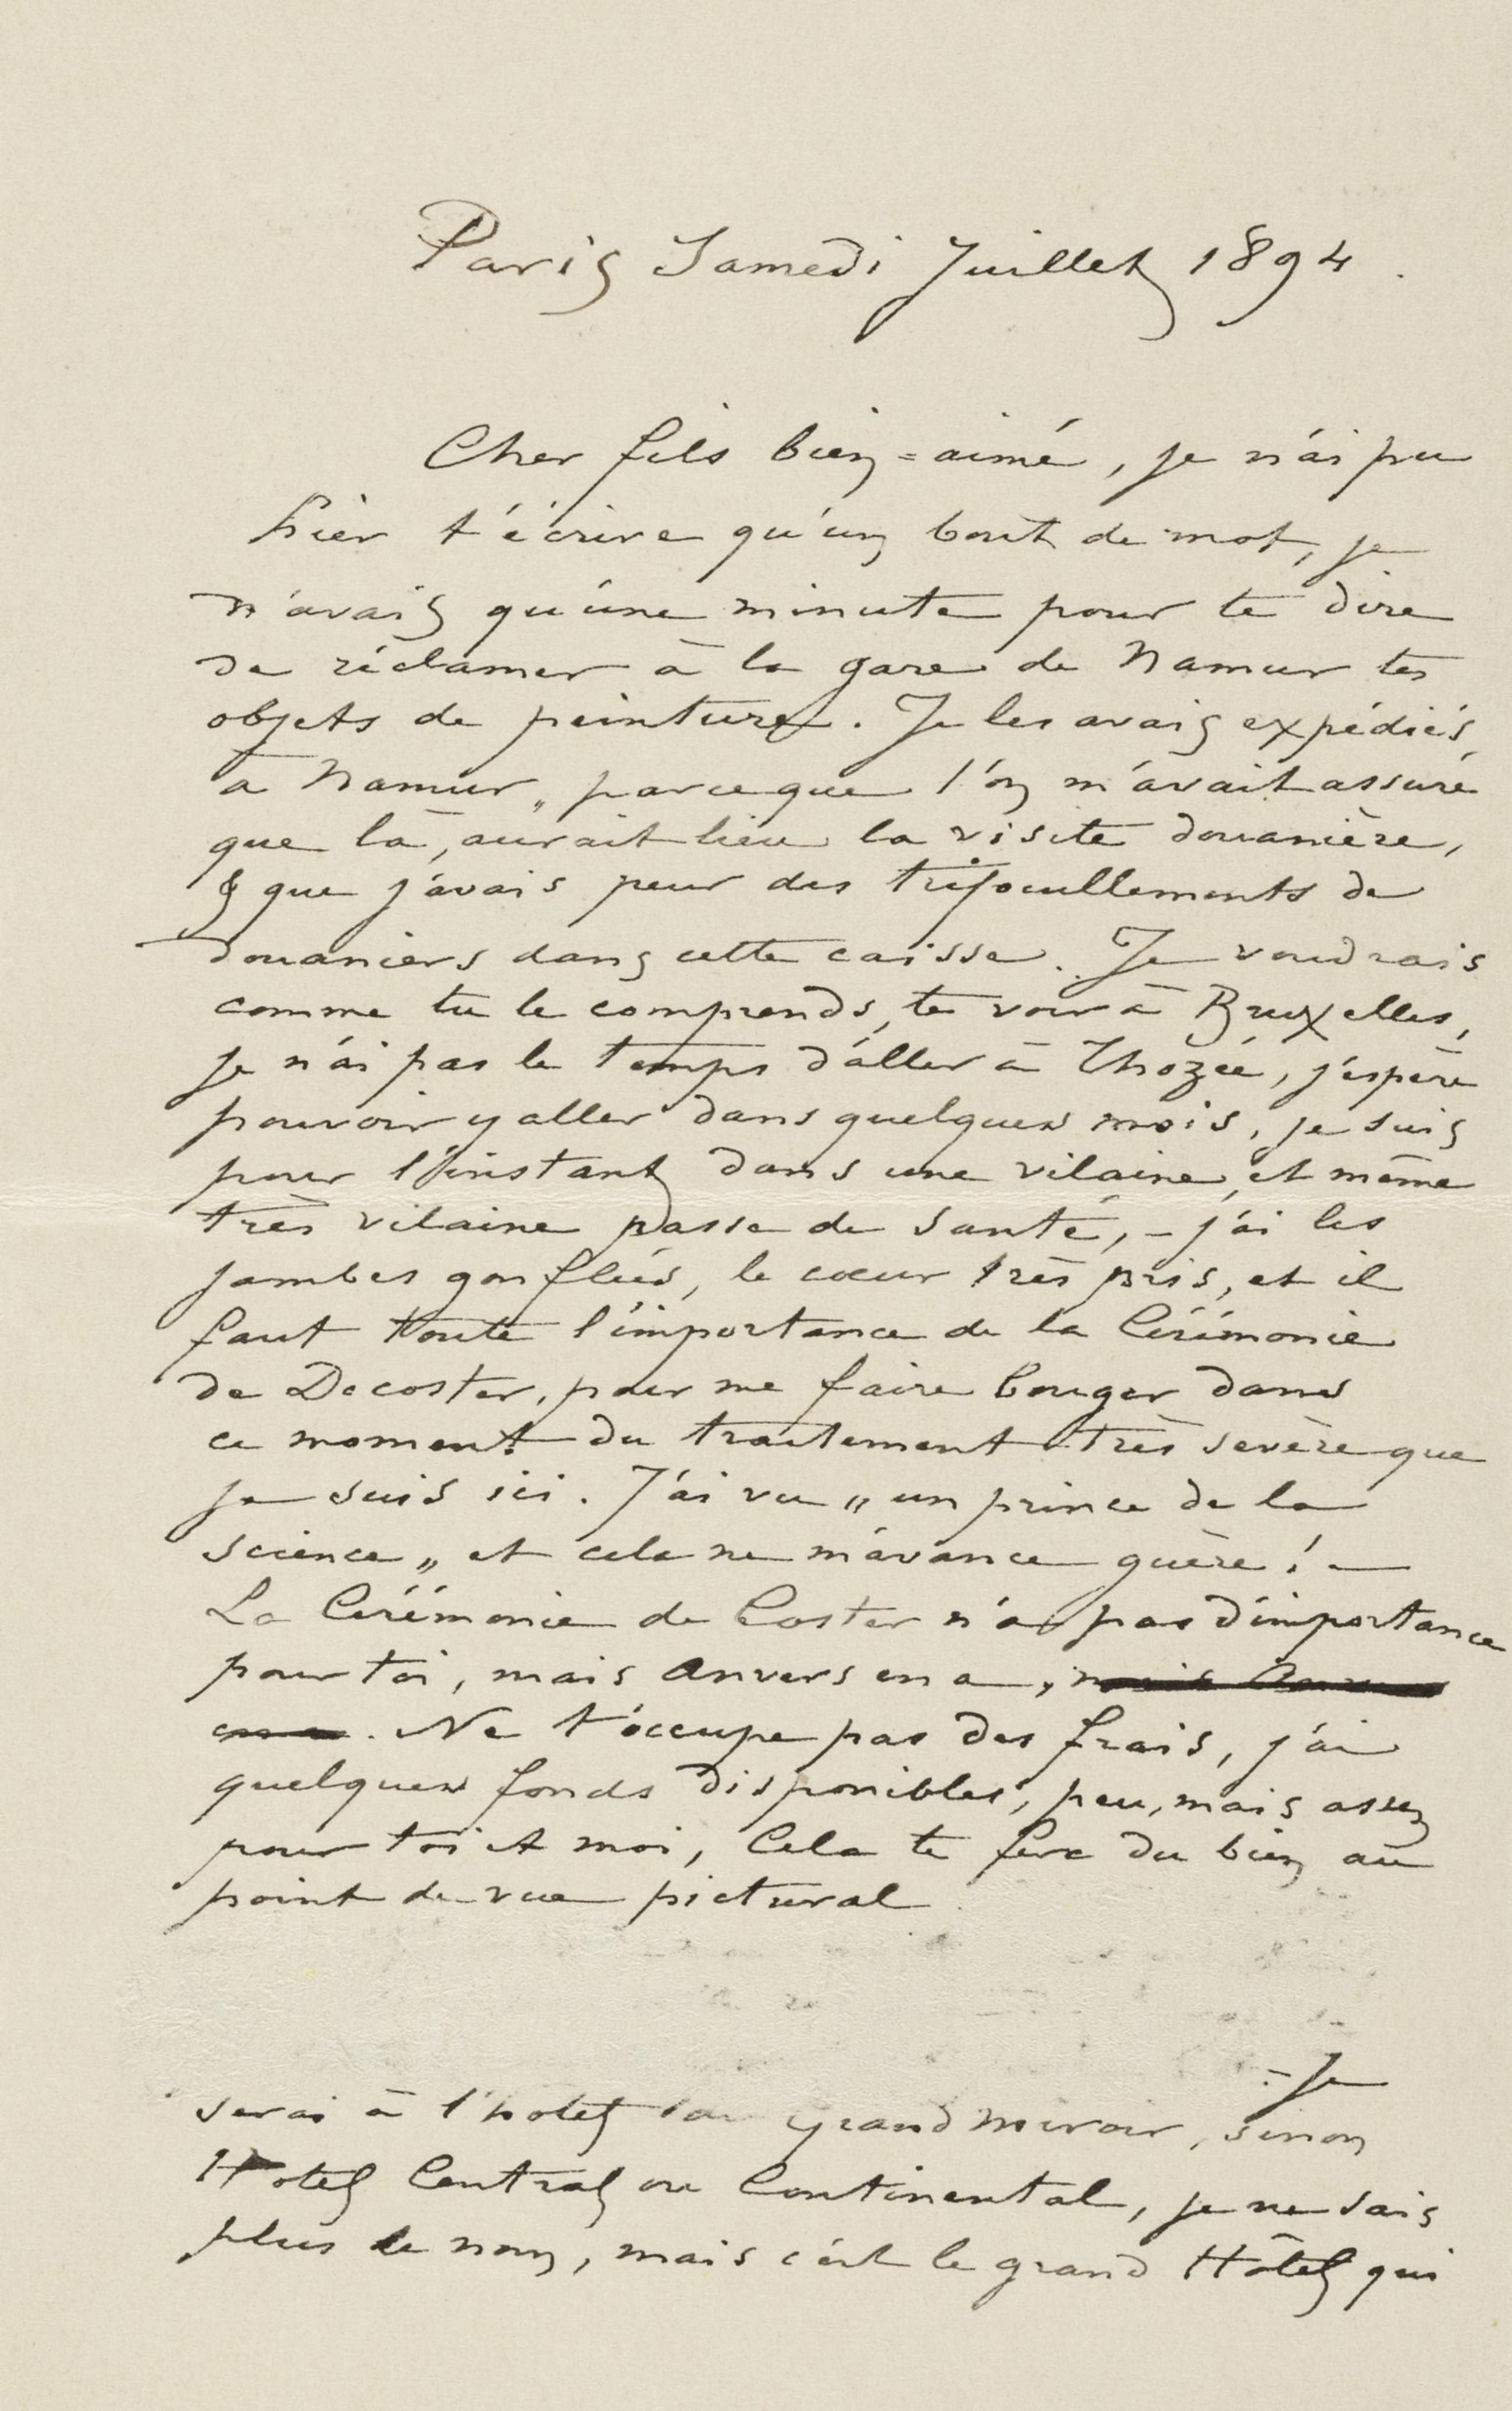 Paris Samedi Juillet 1894.
Cher fils bien=aimé, je n'ai pu
hier t'écrire qu'un bout de mot, je
n'avais qu'une minute pour te dire
de réclamer à la gare de Namur tes
objets de peinture. Je les avais expédiés
à Namur, parceque l'on m'avait assuré
que là, aurait lieu la visite douanière,
& que j'avais peur des trifouillements de
douaniers dans cette caisse. Je voudrais
comme tu le comprends, te voir à Bruxelles,
je n'ai pas le temps d'aller à Thozée, j'espère
pouvoir y aller dans quelques mois, je suis
pour l'instant dans une vilaine, et même
très vilaine passe de santé, – j'ai les
jambes gonflées, le cœur très pris, et il
faut toute l'importance de la Cérémonie
de Decoster, pour me faire bouger dans
ce moment du traitement très sevère que
je suis ici. J'ai vu „ un prince de la
science „ et cela ne m'avance guère ! —
La Cérémonie de Coster n'a pas d'importance
pour toi, mais Anvers en a, mais Anvers
en a. Ne t'occupe pas des frais, j'ai
quelques fonds disponibles, peu, mais assez
pour toi et moi, Cela te fera du bien au
point de vue pictural
– Je
serai à l'hotel du grand miroir, sinon
Hotel Central ou Continental, je ne sais
plus le nom, mais c'est le grand Hôtel qui